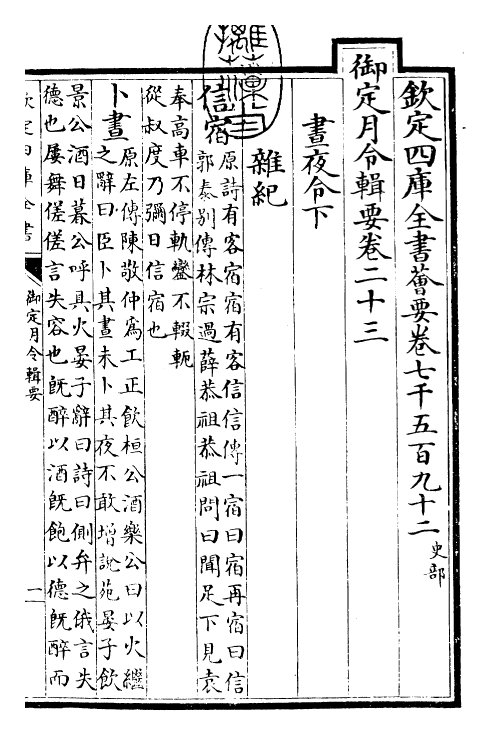 欽定四庫全書薈要卷七千五百九十二史部
御定月令輯要卷二十三
晝夜令下
雜紀
信宿原詩有客宿宿有客信信傳一宿曰宿再宿曰信
郭泰别傳林宗過薛恭祖恭祖問曰聞足下見袁
奉高車不停軌鑾不輟軛
從叔度乃彌日信宿也
卜晝原左傳陳敬仲為工正飲桓公酒樂公曰以火繼
之辭曰臣卜其晝未卜其夜不敢增説苑晏子飲
景公酒日暮公呼具火晏子辭曰詩曰側弁之俄言失
德也屢舞傞傞言失容也既醉以酒既飽以德既醉而
欽定四庫全書
御定月令輯要
一